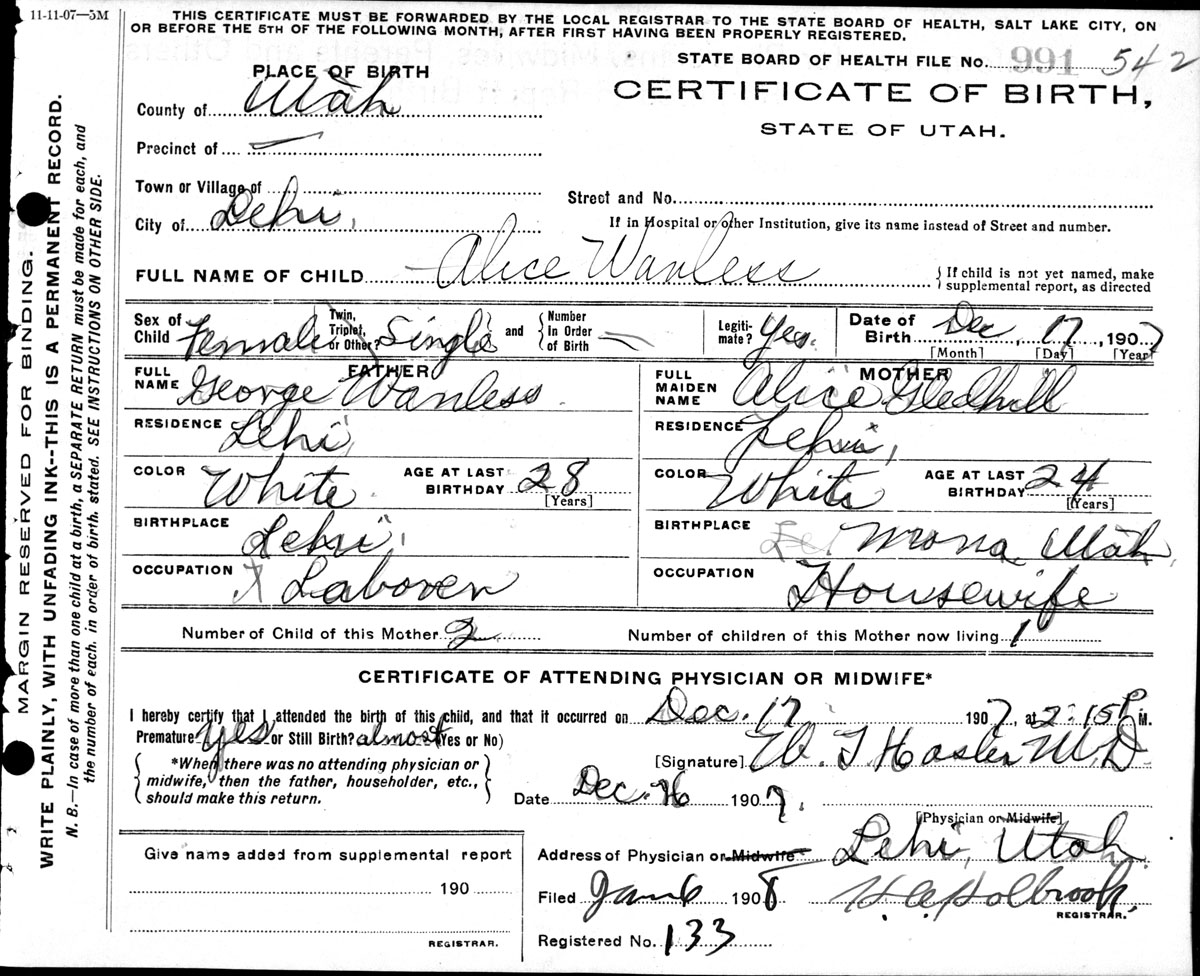 11-11-07—5M
THIS CERTIFICATE MUST BE FORWARDED BY THE LOCAL REGISTRAR TO THE STATE BOARD OF HEALTH, SALT LAKE CITY, ON
OR BEFORE THE 5TH OF THE FOLLOWING MONTH, AFTER FIRST HAVING BEEN PROPERLY REGISTERED.
STATE BOARD OF HEALTH FILE No. 991 542
PLACE OF BIRTH
CERTIFICATE OF BIRTH,
STATE OF UTAH.
County of Utah
Precinct of
Town or Village of
Street and No.
City of Lehi,
If in Hospital or other Institution, give its name instead of Street and number.
FULL NAME OF CHILD Alice Wanless
{ If child is not yet named, make
supplemental report, as directed
Sex of Child Female Twin, Triplet, or Other? Single and Number In Order of Birth — Legiti- mate? Yes. Date of Birth Dec, 17, 1907
[Month] [Day] [Year]
FATHER
MOTHER
FULL NAME George Wanless
FULL MAIDEN NAME Alice Gledhill
RESIDENCE Lehi
RESIDENCE Lehi,
COLOR White AGE AT LAST BIRTHDAY 28 [Years]
COLOR White AGE AT LAST BIRTHDAY 24 [Years]
BIRTHPLACE Lehi,
BIRTHPLACE Mona Utah
OCCUPATION Laborer
OCCUPATION Housewife
Number of Child of this Mother 2
Number of children of this Mother now living 1
CERTIFICATE OF ATTENDING PHYSICIAN OR MIDWIFE*
I hereby certify that I attended the birth of this child, and that it occurred on Dec. 17 1907, at 2:15 P M.
Premature Yes or Still Birth? almost (Yes or No)
*When there was no attending physician or
midwife, then the father, householder, etc.,
should make this return.
[Signature] M.D
Date Dec. 1907.
[Physician or Midwife]
Give name added from supplemental report
190
REGISTRAR.
Address of Physician or Midwife Lehi, Utah
Filed Jan 6 1908 Holbrook,
REGISTRAR.
Registered No. 133
MARGIN RESERVED FOR BINDING.
WRITE PLAINLY, WITH UNFADING INK--THIS IS A PERMANENT RECORD.
N. B.—In case of more than one child at a birth, a SEPARATE RETURN must be made for each, and
the number of each, in order of birth, stated. SEE INSTRUCTIONS ON OTHER SIDE.